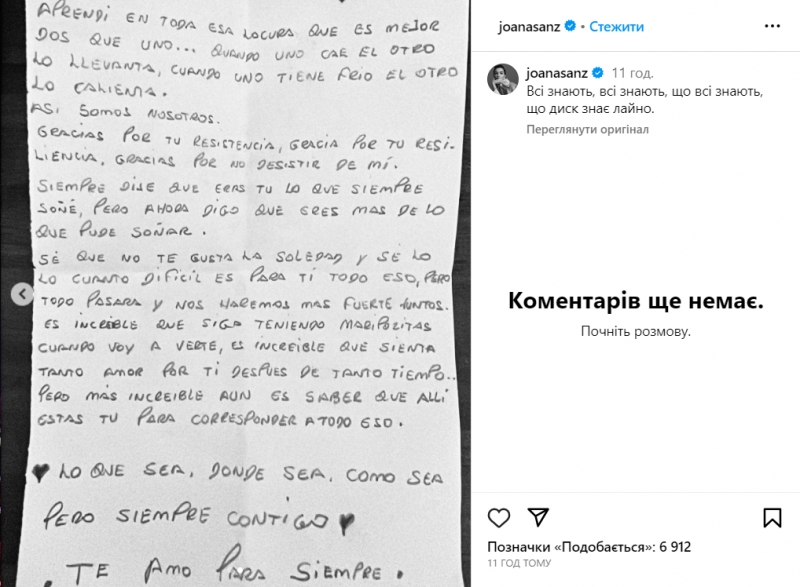 APRENDÍ EN TODA ESA LOCURA QUE ES MEJOR
DOS QUE UNO... QUANDO UNO CAE EL OTRO
LO LLEVANTA, CUANDO UNO TIENE FRIO EL OTRO
LO CALIENTA.
ASI SOMOS NOSOTROS.
GRACIAS POR TU RESISTENCIA, GRACIA POR TU RESI-
LIENCIA, GRACIAS POR NO DESISTIR DE MÍ.
SIEMPRE DIJE QUE ERAS TU LO QUE SIEMPRE
SOÑÉ, PERO AHORA DIGO QUE ERES MAS DE LO
QUE PUDE SOÑAR.
SÉ QUE NO TE GUSTA LA SOLEDAD Y SÉ LO
LO CUANTO DIFÍCIL ES PARA TI TODO ESO, PERO
TODO PASARA Y NOS HAREMOS MAS FUERTE JUNTOS.
ES INCREIBLE QUE SIGA TENIENDO MARIPOZITAS
CUANDO VOY A VERTE, ES INCREIBLE QUE SIENTA
TANTO AMOR POR TI DESPUES DE TANTO TIEMPO..
PERO MÁS INCREIBLE AUN ES SABER QUE ALLÍ
ESTAS TU PARA CORRESPONDER A TODO ESO.
♥ LO QUE SEA, DONDE SEA, COMO SEA
PERO SIEMPRE CONTIGO ♥
. TE AMO PARA SIEMPRE.
joanasanz • Стежити
joanasanz 11 год.
Всі знають, всі знають, що всі знають,
що диск знає лайно.
Переглянути оригінал
Коментарів ще немає.
Почніть розмову.
Позначки «Подобається»: 6 912
11 ГОД ТОМУ